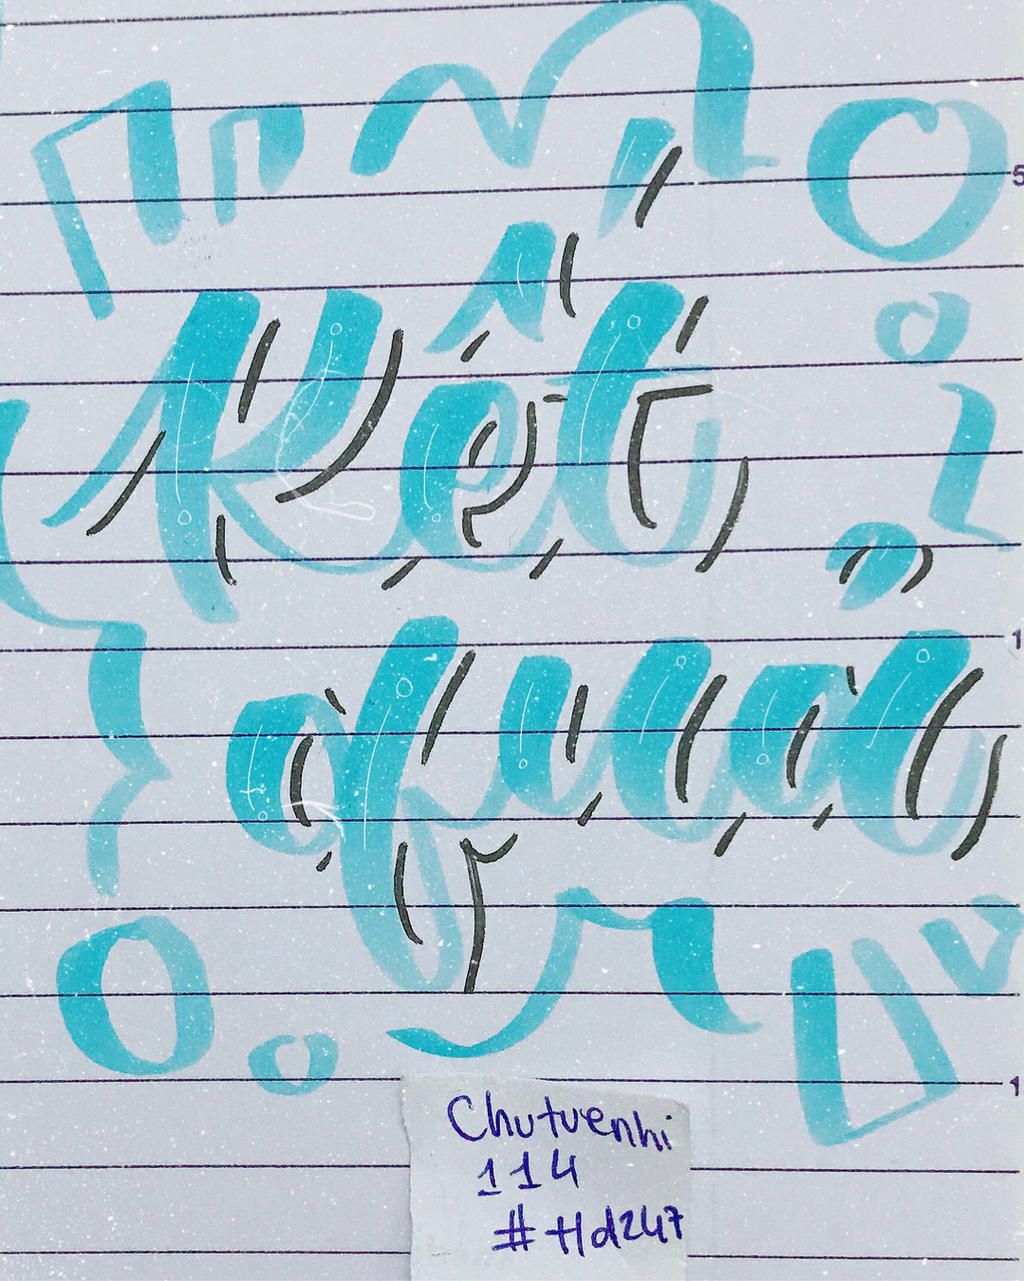 5
Kết
1
quả
1
Chutuenhi
114
#Hd247